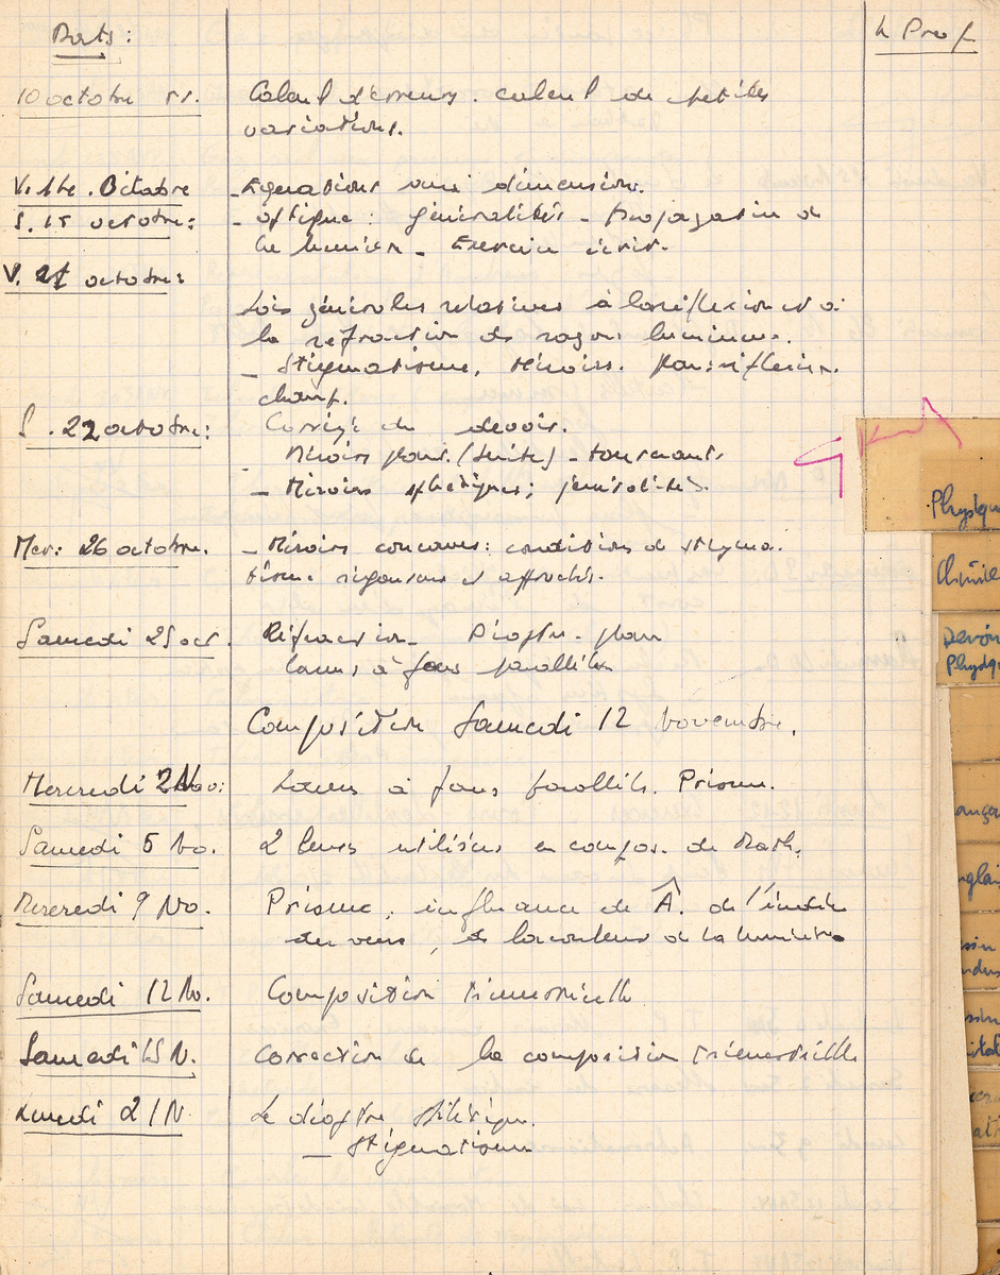 Dates :
Le Prof
10 octobre 55. Calcul d'erreurs. calcul de petites
variations.
V. 14 . Octobre - Equations aux dimensions.
S. 15 octobre : - optique : généralités - Propagation de
la lumière - Exercice écrit.
V. 21 octobre :
Lois générales relatives à la réflexion et à
la réfraction de rayons lumineux.
- Stigmatisme, Miroirs. plan : réflexion.
champ.
S . 22 octobre : Corrigé du devoir.
- Miroirs plans. (suite) - tournants
- Miroirs sphériques ; généralités.
Mer : 26 octobre. - Miroirs concaves : conditions de stigma.
tisme rigoureux et approché.
Samedi 29 oct. Réfraction - Dioptre - plan
Lames à faces parallèles
Composition Samedi 12 novembre.
Mercredi 2 Nov : Lames à faces parallèles. Prisme.
Samedi 5 No. 2 heures utilisées en compos. de Math.
Mercredi 9 No. Prisme, influence de Â. de l'indice
du verre, de la couleur de la lumière.
Samedi 12 No. Composition trimestrielle
Samedi 19 N. Correction de la composition trimestrielle
Lundi 21 N. Le dioptre sphérique.
- Stigmatisme
Physique
Chimie
Devoir
Physiq
ança
nglai
ssin
ssin